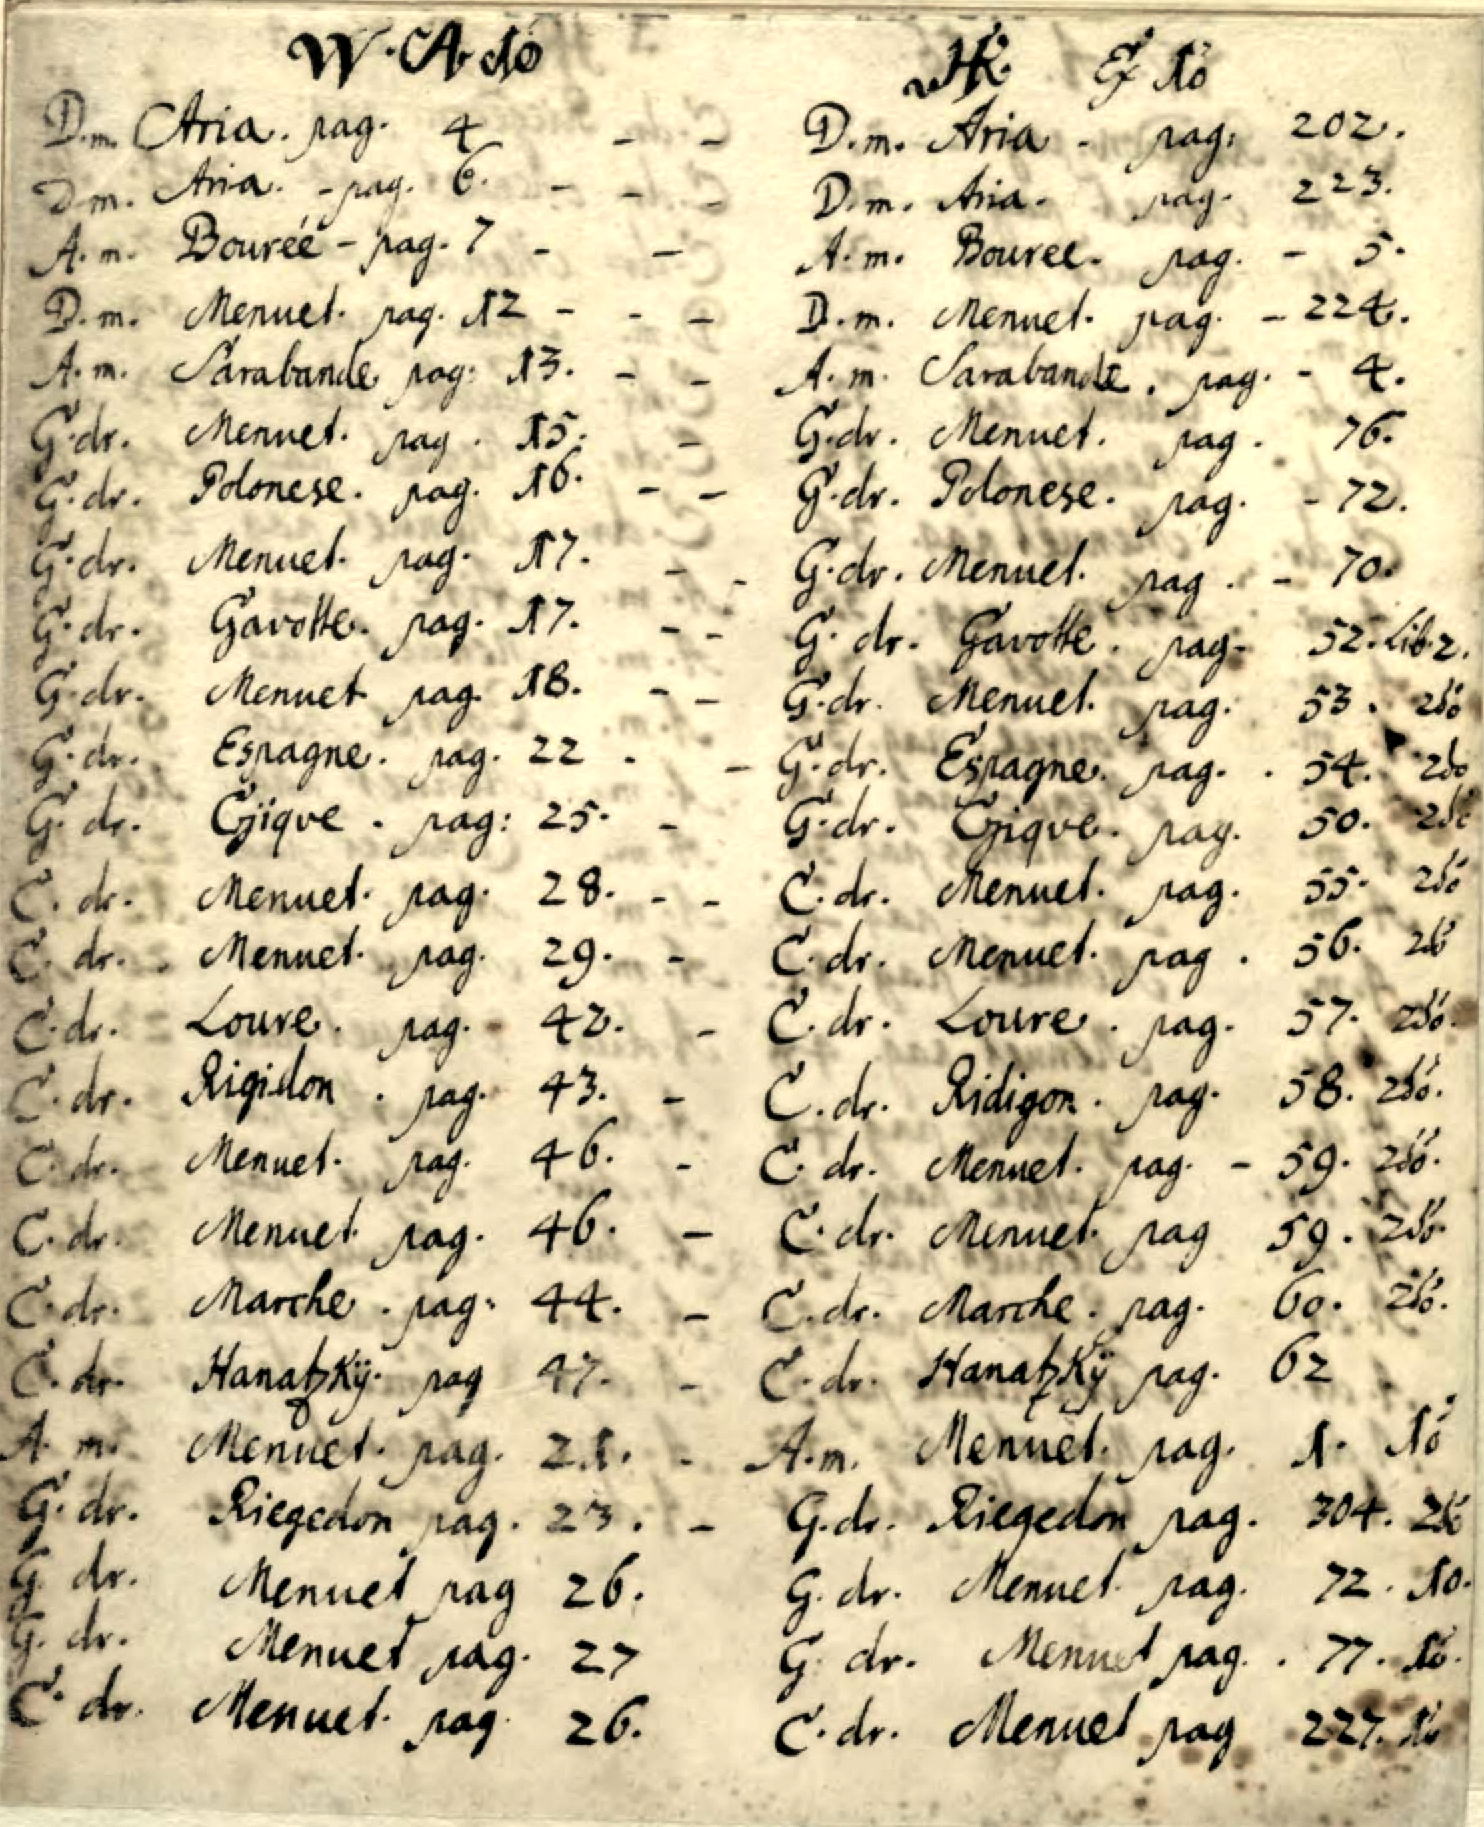 W. A. 1o HK. Ex 1o
D.m. Aria. pag. 4 - - D.m. Aria - pag: 202.
D.m. Aria. - pag. 6. - - - D.m. Aria. pag. 223.
A.m. Bouréé - pag. 7 - - A.m. Bouree. pag. - 5.
D.m. Menuet. pag. 12 - - - D.m. Menuet. pag. - 224.
A.m. Sarabande pag: 13. - - A.m. Sarabande. pag. - 4.
G.dr. Menuet. pag. 15. - G.dr. Menuet. pag. 76.
G.dr. Polonese. pag. 16. - - G.dr. Polonese. pag. - 72.
G.dr. Menuet. pag. 17. - - G.dr. Menuet. pag. - 70.
G.dr. Gavotte. pag. 17. - - G.dr. Gavotte. pag. 52. Lib. 2.
G.dr. Menuet pag. 18. - - G.dr. Menuet. pag. 53. 2do
G.dr. Espagne. pag. 22. - G.dr. Espagne. pag. . 54. 2do
G.dr. Gïqve. pag: 25. - G.dr. Giqve. pag. 50. 2do
C.dr. Menuet. pag. 28. - - C.dr. Menuet. pag. 55. 2do
C.dr. Menuet. pag. 29. - C.dr. Menuet. pag. 56. 2do
C.dr. Loure. pag. 42. - C.dr. Loure. pag. 57. 2do.
C.dr. Rigidon. pag. 43. - C.dr. Ridigon. pag. 58. 2do.
C.dr. Menuet. pag. 46. - C.dr. Menuet. pag. - 59. 2do.
C.dr. Menuet. pag. 46. - C.dr. Menuet. pag 59. 2do.
C.dr. Marche. pag: 44. - C.dr. Marche. pag. 60. 2do.
C.dr. Hanatzkÿ. pag 47. - C.dr. Hanatzkÿ pag. 62
A.m. Menuet. pag. 21. - A.m. Menuet. pag. 1. 1o
G.dr. Riegedon pag. 23. - G.dr. Riegedon pag. 304. 2do
G.dr. Menuet pag 26. G.dr. Menuet. pag. 72. 1o.
G.dr. Menuet pag. 27 G.dr. Menuet pag. . 77. 1o.
C.dr. Menuet. pag. 26. C.dr. Menuet pag 227. 1o